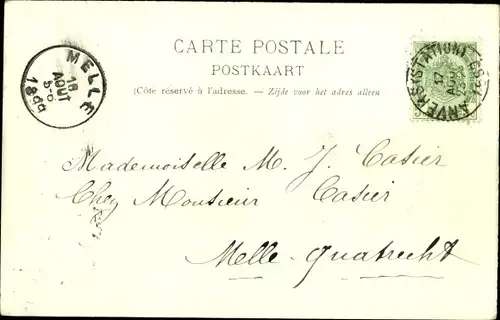 CARTE POSTALE
POSTKAART
(Côte réservé à l'adresse. — Zijde voor het adres alleen
MELLE
18
AOUT
5-6
1899
ANVERS (STATION)
17
AOUT
Mademoiselle M. J. Casier
Chez Monsieur Casier
Melle-Quatrecht